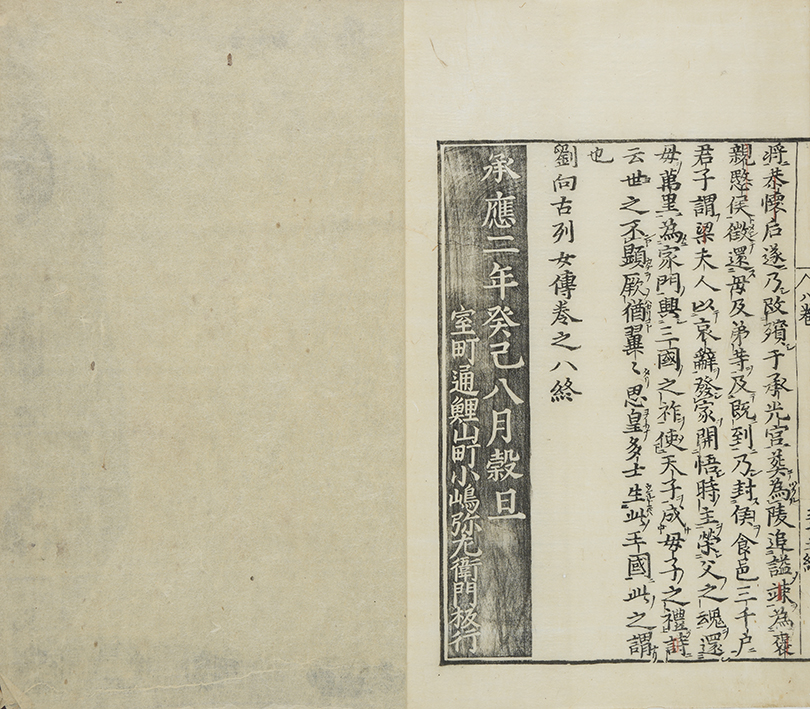 将恭懷后遂乃改殯于承光宮葬為陵追謚竦為褒
親愍侯徵還母及弟等及既到乃封侯食邑三千戶
君子謂梁夫人以哀辭發家開悟時主榮父之魂還
母萬里為家門興三國之祚使天子成母子之禮詩
云世之不顯厥猶翼〻思皇多士生此王國此之謂
也
劉向古列女傳巻之八終
承應二年癸己八月穀旦
室町通鯉山町小嶋弥左衛門板行